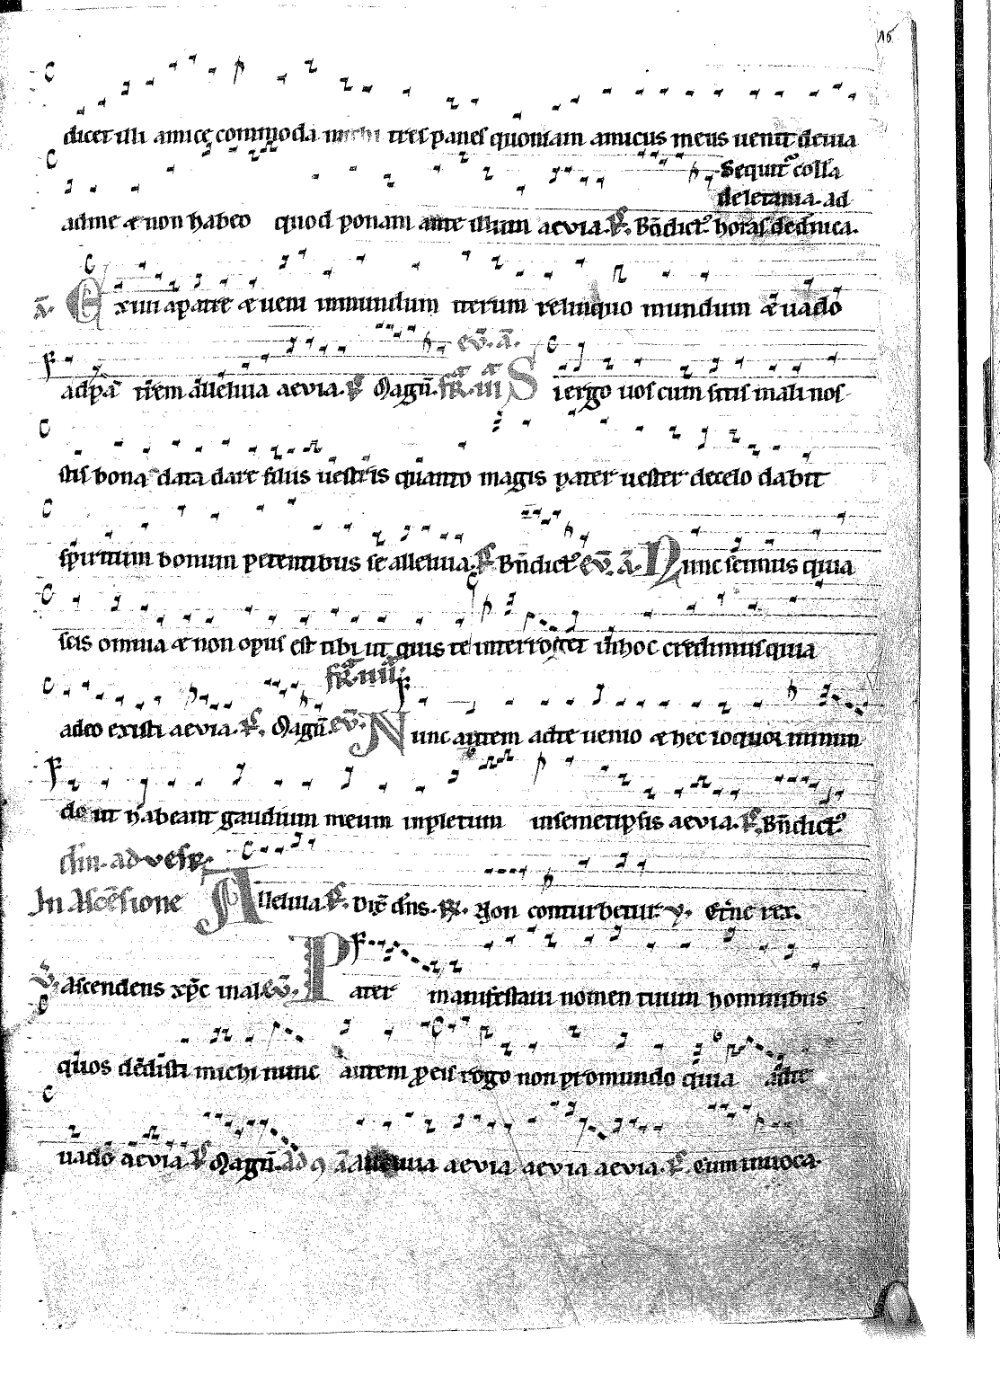 15
dicet illi amice commoda michi tres panes quoniam amicus meus uenit deuia
Sequit² colla
deletania. ad
adme & non habeo quod ponam ante illum aevia. ps. Bn̄dict². horas dedn̄ica.
ā. Exiui apatre & ueni inmundum iterum relinquo mundum & uado
adpā trem alleluia aevia. ps. Magn̄. euv̄. ā. fr̄. iii Siergo uos cum sitis mali nos
tis bona data dare filiis uestris quanto magis pater uester decelo dabit
spiritum bonum petentibus se alleluia. ps. Bn̄dict². euv̄. ā. Nunc scimus quia
scis omnia & non opus est tibi ut quis te interroget inhoc credimus quia
fr̄. iiii.
adeo existi aevia. ps. Magn̄. euv̄. Nunc autem adte uenio & hec loquor inmun
do ut habeant gaudium meum inpletum insemetipsis aevia. ps. Bn̄dict²
dn̄i. ad vesp̄.
In Ascēsione Alleluia. ps. Dix̄ dn̄s. R. Non conturbetur. v. Et̄ne rex.
v̄. Ascendens xp̄c inal euv̄. Pater manifestaui nomen tuum hominibus
quos dedisti michi nunc autem pro eis rogo non pro mundo quia adte
uado aevia. ps. Magn̄. ad 9 ā alleluia aevia aevia aevia. ps. Cum inuoca.